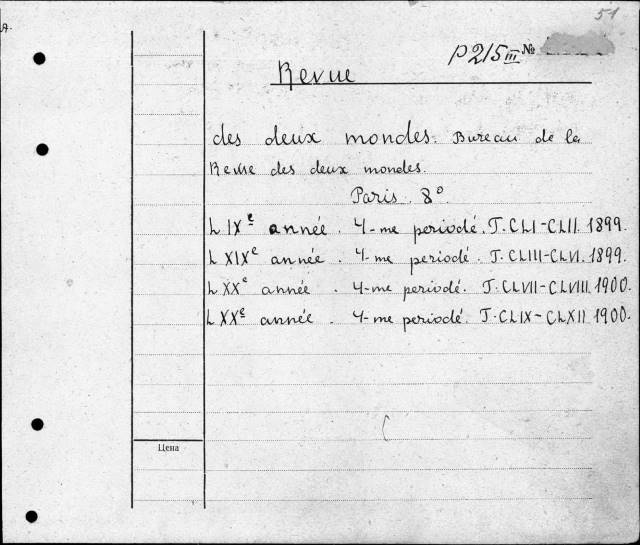 51
А.
P 215 III №
Revue
des deux mondes. Bureau de la
Revue des deux mondes.
Paris. 8°
LIXe année. 4-me periodé. T. CLI-CLII. 1899.
LXIXe année. 4-me periodé. T. CLIII-CLVI. 1899.
LXXe année. 4-me periodé. T. CLVII-CLVIII. 1900.
LXXe année. 4-me periodé. T. CLIX-CLXII. 1900.
Цена